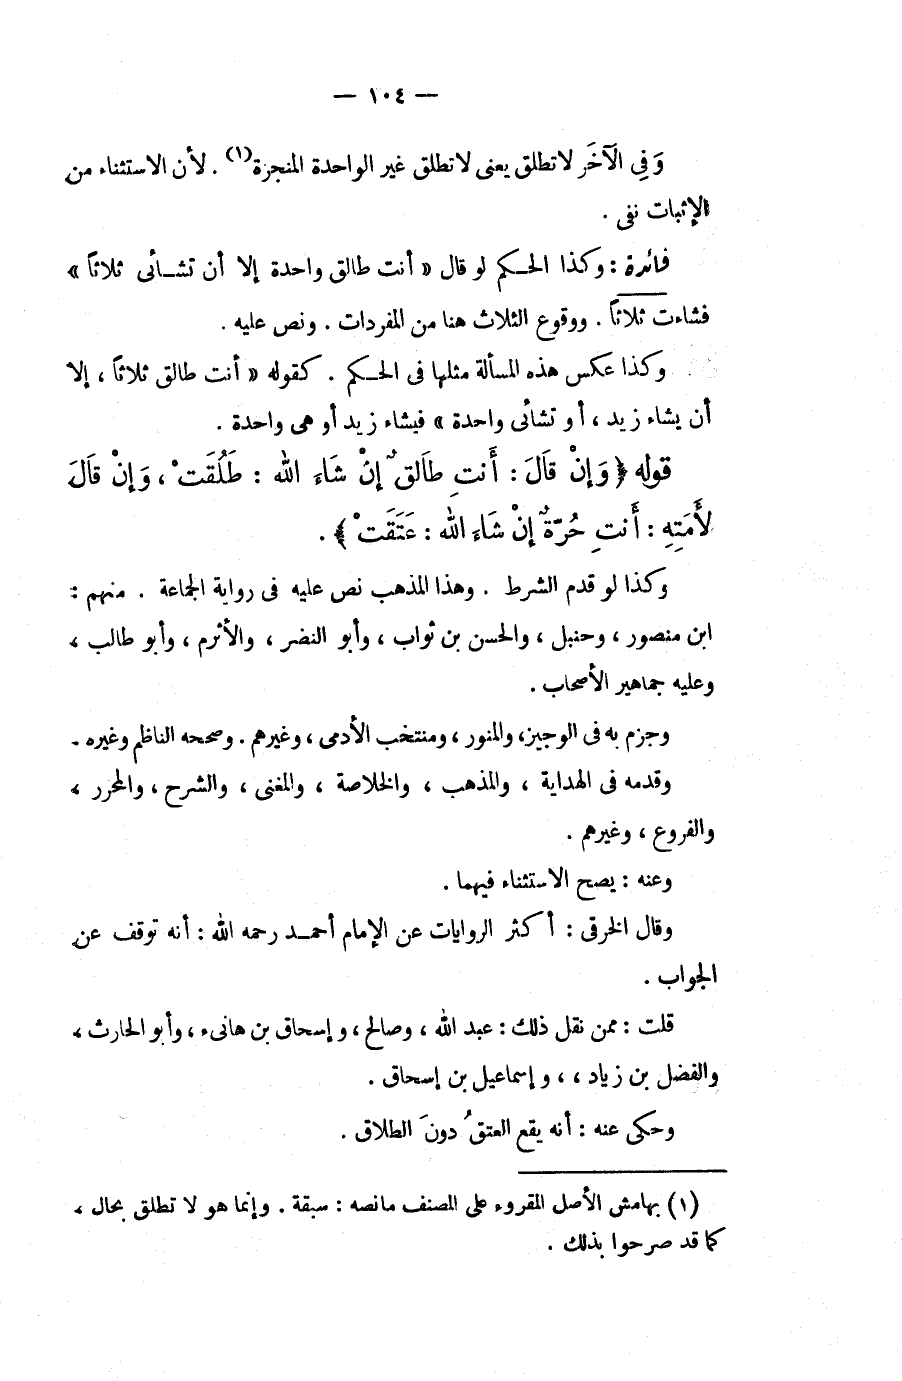 — ١٠٤ —
وَفِي الْآخَر لا تطلق يعنى لا تطلق غير الواحدة المنجزة(١) . لأن الاستثناء من
الإثبات نفى .
فائدة : وكذا الحكم لو قال « أنت طالق واحدة إلا أن تشائى ثلاثاً »
فشاءت ثلاثاً . ووقوع الثلاث هنا من المفردات . ونص عليه .
وكذا عكس هذه المسألة مثلها فى الحكم . كقوله « أنت طالق ثلاثاً ، إلا
أن يشاء زيد ، أو تشائى واحدة » فيشاء زيد أو هى واحدة .
قوله ﴿ وَإِنْ قَالَ : أَنتِ طَالقٌ إِنْ شَاءَ الله : طَلُقَتْ ، وَإِنْ قَالَ
لأَمَتِهِ : أَنتِ حُرّةٌ إِنْ شَاءَ الله : عَتَقَتْ ﴾ .
وكذا لو قدم الشرط . وهذا المذهب نص عليه فى رواية الجماعة . منهم :
ابن منصور ، وحنبل ، والحسن بن ثواب ، وأبو النضر ، والأثرم ، وأبو طالب ،
وعليه جماهير الأصحاب .
وجزم به فى الوجيز، والمنور ، ومنتخب الأدمى ، وغيرهم . وصححه الناظم وغيره .
وقدمه فى الهداية ، والمذهب ، والخلاصة ، والمغنى ، والشرح ، والمحرر ،
والفروع ، وغيرهم .
وعنه : يصح الاستثناء فيهما .
وقال الخرقى : أكثر الروايات عن الإمام أحمد رحمه الله : أنه توقف عن
الجواب .
قلت : ممن نقل ذلك : عبد الله ، وصالح ، وإسحاق بن هانىء ، وأبو الحارث ،
والفضل بن زياد ، ، وإسماعيل بن إسحاق .
وحكى عنه : أنه يقع العتقُ دونَ الطلاق .
(١) بهامش الأصل المقروء على المصنف مانصه : سبقة . وإنما هو لا تطلق بحال ،
كما قد صرحوا بذلك .